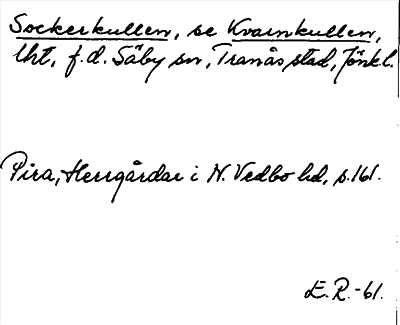 Sockerkullen, se Kvarnkullen,
lht, f.d. Säby sn, Tranås stad, Jönkl.
Pira, Herrgårdar i N. Vedbo hd, s.161.
E.R.-61.